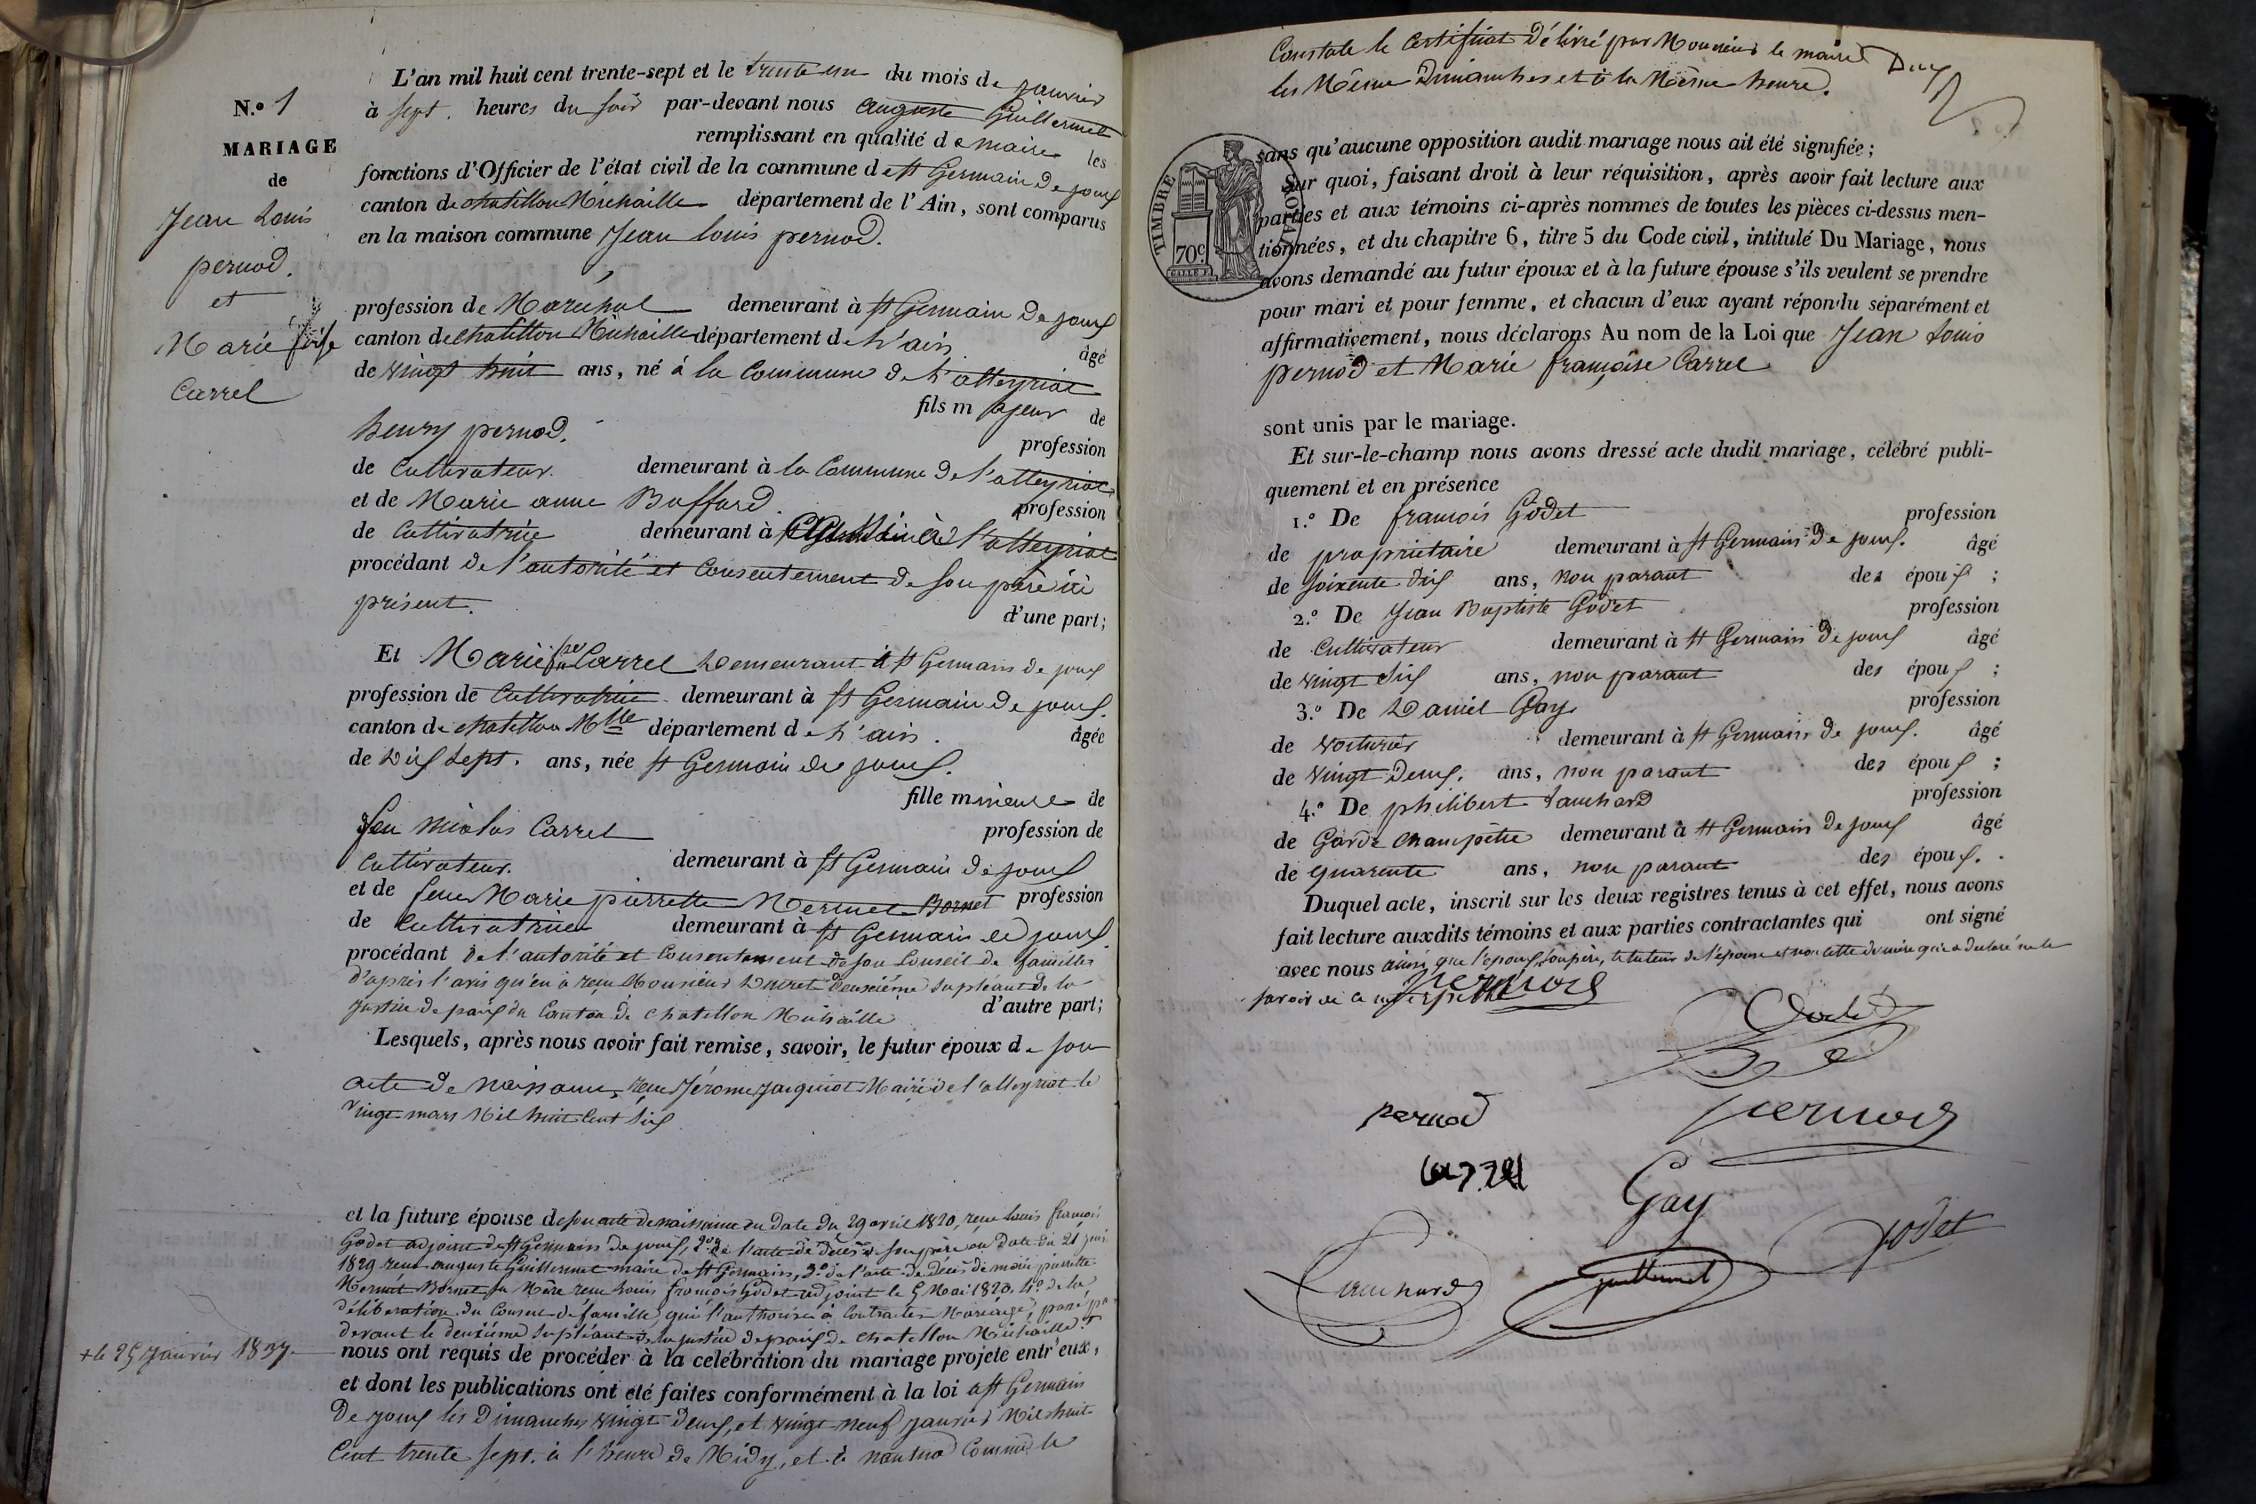 N.o 1
MARIAGE
de
Jean Louis
pernod.
et
Marie fçoise
Carrel
L'an mil huit cent trente-sept et le trente un du mois de janvier
à sept heures du soir par-devant nous auguste Guillermet
remplissant en qualité de maire les
fonctions d'Officier de l'état civil de la commune de st Germain de joux
canton de chatillon Michaille département de l'Ain, sont comparus
en la maison commune Jean Louis pernod.
profession de Maréchal demeurant à st Germain de joux
canton de chatillon Michaille département de L'ain âgé
de vingt huit ans, né à la Commune de L'alleyriat
fils majeur de
henry pernod. profession
de Cultivateur demeurant à la Commune de l'alleyriat
et de Marie anne Buffard profession
de Cultivatrice demeurant à l'alleyriat
procédant de l'autorité et consentement de son père ici
présent. d'une part;
Et Marie fse Carrel Demeurant à st Germain de joux
profession de Cultivatrice demeurant à st Germain de joux.
canton de chatillon Mlle département de L'ain. âgée
de Dix Sept. ans, née st Germain de joux.
fille mineure de
feu Nicolas Carrel profession de
Cultivateur. demeurant à st Germain de joux
et de feue Marie pierrette Mermet Bornet profession
de Cultivatrice demeurant à st Germain de joux.
procédant de l'autorité et consentement de son Conseil de familles
d'après l'avis qu'en a reçu Monsieur Ducret deuxième supléant de la
justice de paix du Canton de Chatillon Michaille d'autre part;
Lesquels, après nous avoir fait remise, savoir, le futur époux de son
acte de naissance, reçu Jérome Jacquiot Maire de l'alleyriat le
vingt mars Mil huit Cent dix
et la future épouse de son acte de naissance en date du 29 avril 1820, reçu Louis françois
Godet adjoint de st Germain de joux, 2o de l'acte de décès de son père en Date du 21 juin
1829 reçu auguste Guillermet maire de st Germain, 3.o de l'acte de Décès de marie pierrette
Mermet Bornet sa Mère reçu Louis françois Godet adjoint le 5 Mai 1820. 4.o de la
déliberation du Conseil de famille qui l'authorise à Contracter Mariage, passé par
devant le deuxième supléant de la justice de paix de Chatillon Michaille +
+ le 25 Janvier 1837.
nous ont requis de procéder à la célébration du mariage projeté entr'eux,
et dont les publications ont été faites conformément à la loi a st Germain
De joux les Dimanches vingt Deux, et vingt neuf janvier Mil huit
Cent trente sept. à l'heure de Midy, et à nantua Comme le
Constate le Certificat Délivré par Monsieur le maire Du
les Même Dimanches et à la Même heure.
TIMBRE ROYAL
70c
sans qu'aucune opposition audit mariage nous ait été signifiée;
Sur quoi, faisant droit à leur réquisition, après avoir fait lecture aux
parties et aux témoins ci-après nommés de toutes les pièces ci-dessus men-
tionnées, et du chapitre 6, titre 5 du Code civil, intitulé Du Mariage, nous
avons demandé au futur époux et à la future épouse s'ils veulent se prendre
pour mari et pour femme, et chacun d'eux ayant répondu séparément et
affirmativement, nous déclarons Au nom de la Loi que Jean Louis
pernod et Marie françoise Carrel
sont unis par le mariage.
Et sur-le-champ nous avons dressé acte dudit mariage, célébré publi-
quement et en présence
1.o De francois Godet profession
de propriétaire demeurant à st Germain de joux. âgé
de soixente dix ans, non parant des époux ;
2.o De Jean Baptiste Godet profession
de Cultivateur demeurant à st Germain de joux âgé
de vingt Six ans, non parant des époux ;
3.o De Daniel Gay profession
de voiturier demeurant à st Germain de joux. âgé
de vingt Deux. ans, non parant des époux ;
4.o De philibert Tauchard profession
de Garde champêtre demeurant à st Germain de joux âgé
de quarente ans, non parant des époux.
Duquel acte, inscrit sur les deux registres tenus à cet effet, nous avons
fait lecture auxdits témoins et aux parties contractantes qui ont signé
avec nous ainsi que l'époux, son père, le tuteur de l'épouse et non cette dernière qui a declaré ne le
savoir de ce
pernod
Godet
pernod
pernod
Carrel
Gay
Godet
Guillermet